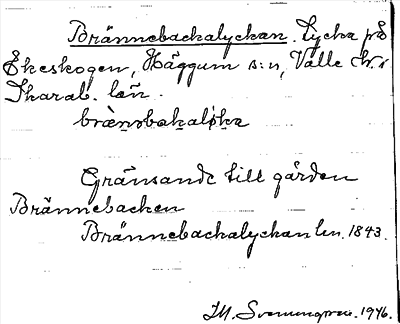 Brännebackalyckan. Lycka på
Ekeskogen, Häggum s:n, Valle hd.
Skarab. län.
brænəbakaløka
Gränsande till gården
Brännebacken
Brännebackalyckan ln. 1843.
M. Svenungsson. 1946.